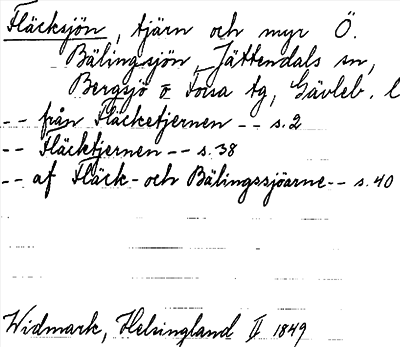 Fläcksjön, tjärn och myr Ö.
Bälingsjön, Jättendals sn,
Bergsjö o Forsa tg, Gävleb. l
-- från Fläcketjernen -- s.2
-- Fläcktjernen -- s.38
-- af Fläck- och Bälingssjöarne -- s.40
Widmark, Helsingland II 1849